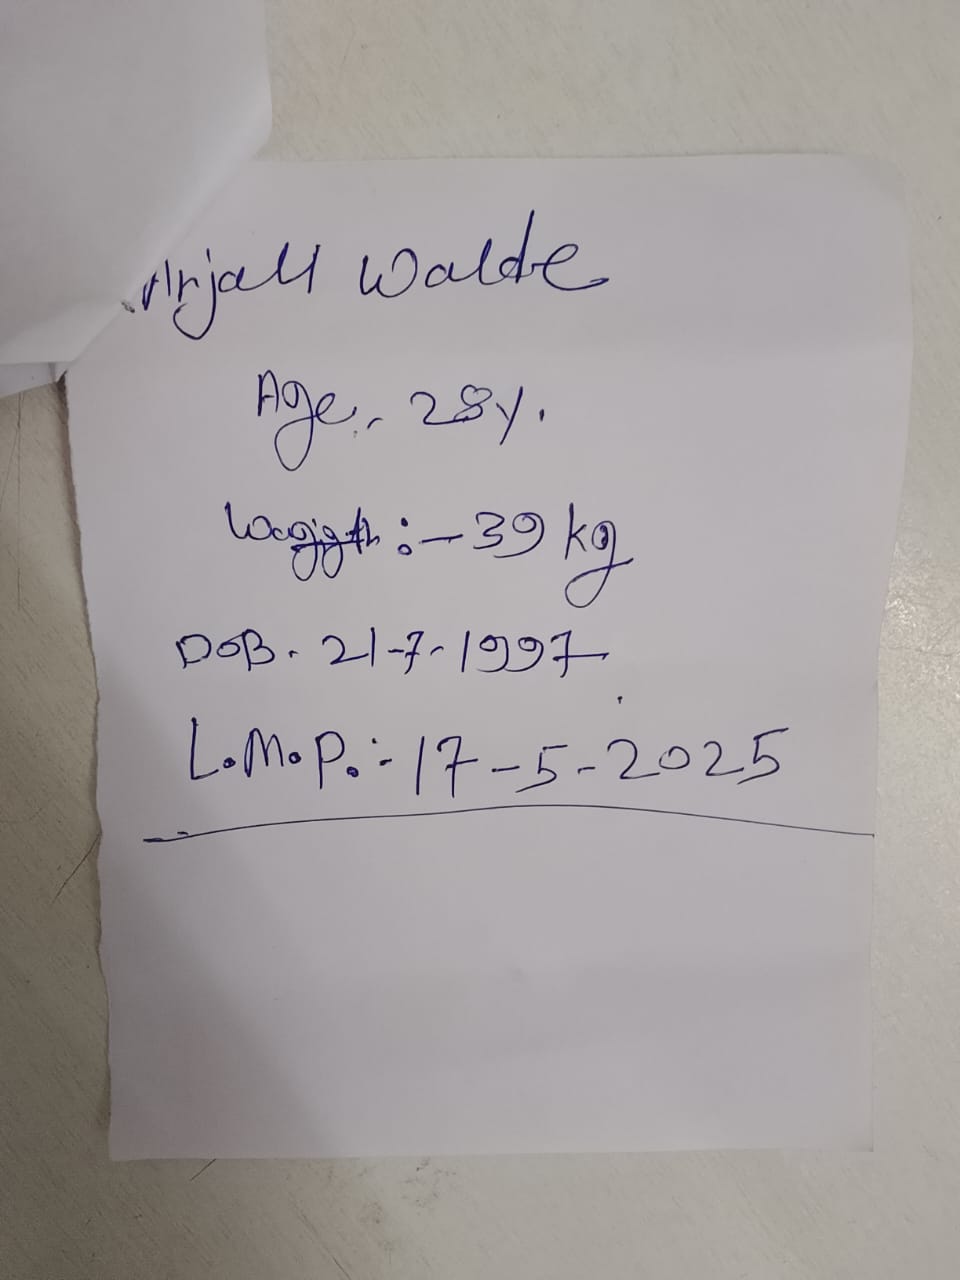 Anjali Walde
Age. - 28y.
:- 39 kg
DOB. 21-7-1997
L.M.P. :- 17-5-2025